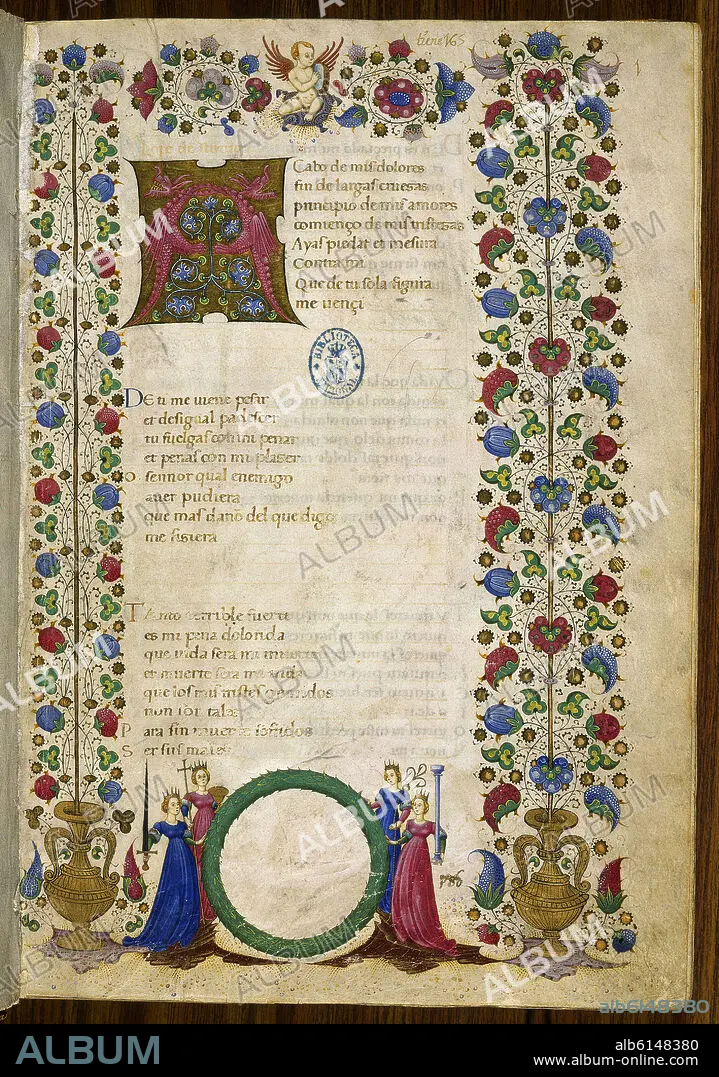 bene 163
1
Cabo de mis dolores
fin de largas cruesas
principio de mis amores
comienço de mis tristesas
Ayas piedat et mesura
Contra mi
Que de tu sola figura
me vençi
BIBLIOTECA
DE ti me viene pesar
et desigual padesçer
tu fuelgas con mi penar
et penas con mi plaser
o sennor qual enemigo
aver pudiera
que mas dano del que digo
me fisiera
TAnto terrible fuerte
es mi pena dolorida
que vida sera mi muerte
et muerte sera mi vida
que los mis tristes
non son tales
Para sin muerte
Ser sus males
ALBUM
alb6148380
ALBUM
alb6148380
www.album-online.com